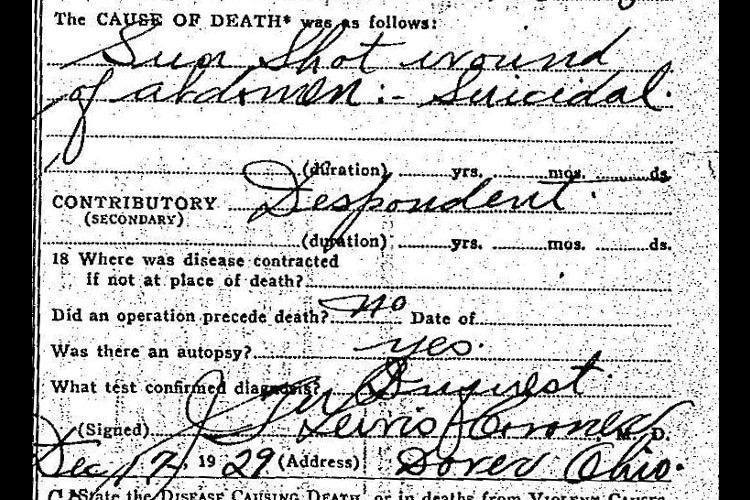 The CAUSE OF DEATH* was as follows:
Gun Shot wound
of abdomen:- Suicidal.
(duration) yrs. mos. ds.
CONTRIBUTORY Despondent.
(SECONDARY)
(duration) yrs. mos. ds.
18 Where was disease contracted
if not at place of death?
Did an operation precede death? no Date of
Was there an autopsy? yes.
What test confirmed diagnosis? Inquest.
(Signed) Lewis Coroner M. D.
Dec 12, 1929 (Address) Dover Ohio.
*State the DISEASE CAUSING DEATH, or in deaths from VIOLENT CAUSES